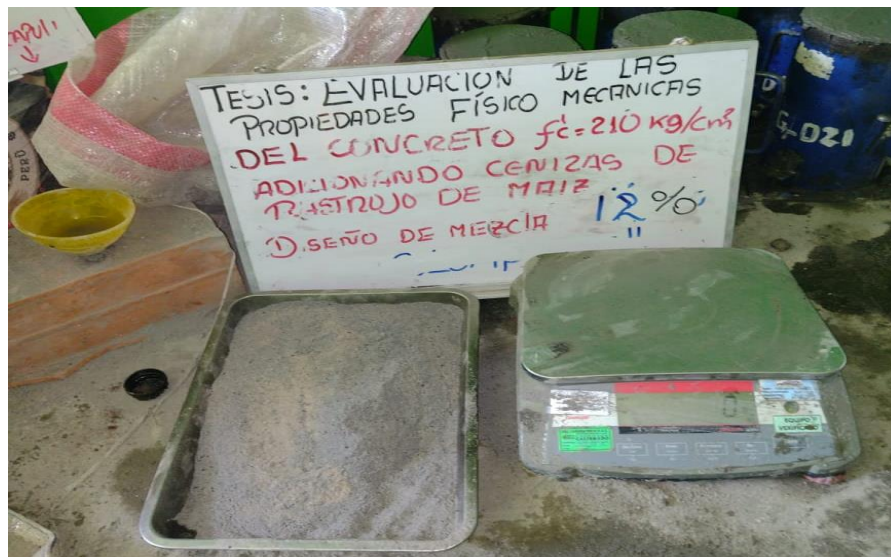 TESIS: EVALUACION DE LAS
PROPIEDADES FÍSICO MECANICAS
DEL CONCRETO f'c=210 kg/cm²
ADICIONANDO CENIZAS DE
RASTROJO DE MAIZ
DISEÑO DE MEZCLA 12%
G-DZ1
PERÚ